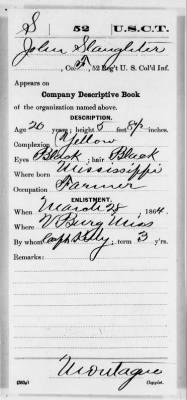 S 52 U.S.C.T.
John Slaughter
, Co. F, 52 Reg't U. S. Col'd Inf.
Appears on
Company Descriptive Book
of the organization named above.
DESCRIPTION.
Age 20 years; height 5 feet 8½ inches.
Complexion Yellow
Eyes Black; hair Black
Where born Mississippi
Occupation Farmer
ENLISTMENT.
When March 28, 1864.
Where V Burg Miss
By whom Capt ; term 3 y'rs.
Remarks:
Montague
Copyist.